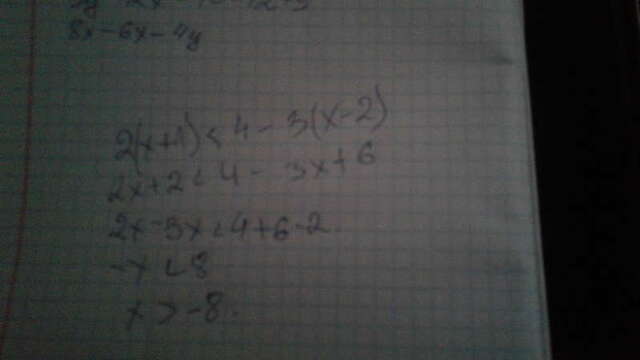 8x-6x-4y
2(x+1)<4-3(x-2)
2x+2<4-3x+6
2x-3x<4+6-2
-x<8
x>-8.